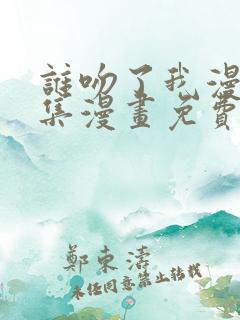 誰吻了我漫
集漫畫免費
鄭東濤
未经同意禁止转载